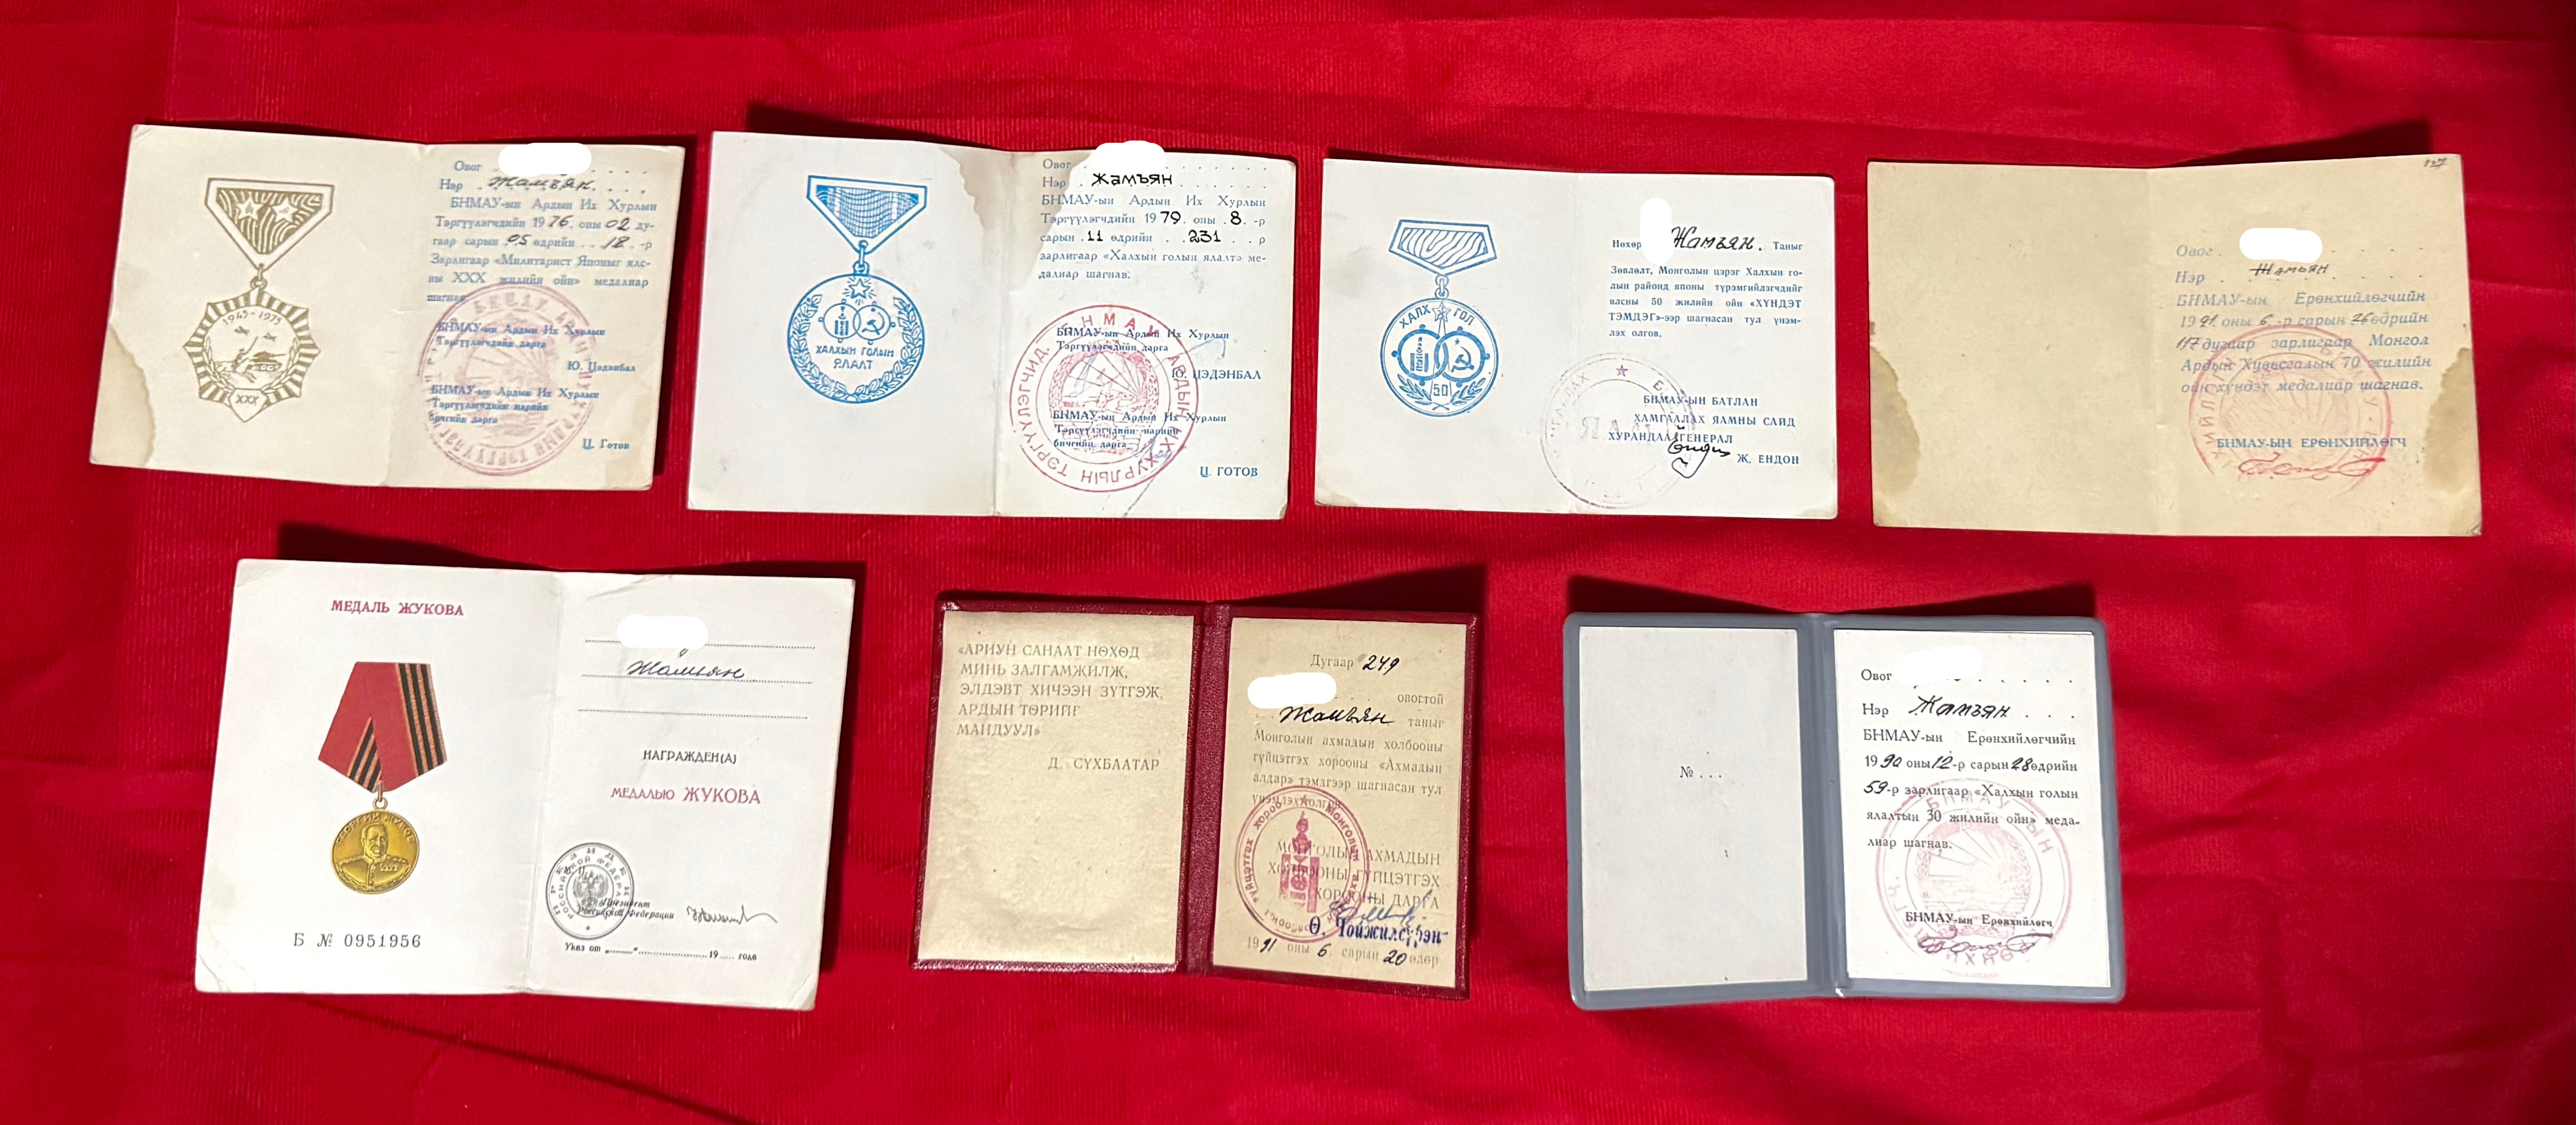 Овог
Нэр Жамъян
БНМАУ-ын Ардын Их Хурлын
Тэргүүлэгчдийн 1976 оны 02 ду-
гаар сарын 05 өдрийн 18 -р
Зарлигаар «Милитарист Японыг ялс-
ны XXX жилийн ойн» медалиар
шагнав
1945-1975
XXX
БНМАУ-ын Ардын Их Хурлын
Тэргүүлэгчдийн дарга
Ю. Цэдэнбал
БНМАУ-ын Ардын Их Хурлын
Тэргүүлэгчдийн нарийн
бичгийн дарга
Ц. Готов
Овог
Нэр Жамъян
БНМАУ-ын Ардын Их Хурлын
Тэргүүлэгчдийн 1979 оны 8 -р
сарын 11 өдрийн 231 р
зарлигаар «Халхын голын ялалт» ме-
далиар шагнав.
ХАЛХЫН ГОЛЫН
ЯЛАЛТ
БНМАУ-ын Ардын Их Хурлын
Тэргүүлэгчдийн дарга
Ю. ЦЭДЭНБАЛ
БНМАУ-ын Ардын Их Хурлын
Тэргүүлэгчдийн нарийн
бичгийн дарга
Ц. ГОТОВ
Нөхөр Жамъян. Таныг
Зөвлөлт, Монголын цэрэг Халхын го-
лын районд японы түрэмгийлэгчдийг
ялсны 50 жилийн ойн «ХҮНДЭТ
ТЭМДЭГ»-ээр шагнасан тул үнэм-
лэх олгов.
ХАЛХ ГОЛ
50
БНМАУ-ЫН БАТЛАН
ХАМГААЛАХ ЯАМНЫ САЙД
ХУРАНДАА ГЕНЕРАЛ
Ж. ЕНДОН
127
Овог
Нэр Жамъян
БНМАУ-ын Ерөнхийлөгчийн
1991 оны 6 -р сарын 26 өдрийн
117 дугаар зарлигаар Монгол
Ардын Хувьсгалын 70 жилийн
ойн хүндэт медалиар шагнав.
БНМАУ-ЫН ЕРӨНХИЙЛӨГЧ
МЕДАЛЬ ЖУКОВА
ГЕОРГИЙ ЖУКОВ
Б № 0951956
Жамъян
НАГРАЖДЕН(А)
МЕДАЛЬЮ ЖУКОВА
Президент
Российской Федерации
Указ от „......“ 19..... года
«АРИУН САНААТ НӨХӨД
МИНЬ ЗАЛГАМЖИЛЖ,
ЭЛДЭВТ ХИЧЭЭН ЗҮТГЭЖ,
АРДЫН ТӨРИЙГ
МАНДУУЛ»
Д. СҮХБААТАР
Дугаар 249
овогтой
Жамъян таныг
Монголын ахмадын холбооны
гүйцэтгэх хорооны «Ахмадын
алдар» тэмдгээр шагнасан тул
үнэмлэх олгов.
МОНГОЛЫН АХМАДЫН
ХОЛБООНЫ ГҮЙЦЭТГЭХ
ХОРООНЫ ДАРГА
Ө. Чойжилсүрэн
1991 оны 6 сарын 20 өдөр
№ . . .
Овог
Нэр Жамъян
БНМАУ-ын Ерөнхийлөгчийн
1990 оны 12-р сарын 28 өдрийн
59-р зарлигаар «Халхын голын
ялалтын 30 жилийн ойн» меда-
лиар шагнав.
БНМАУ-ын Ерөнхийлөгч